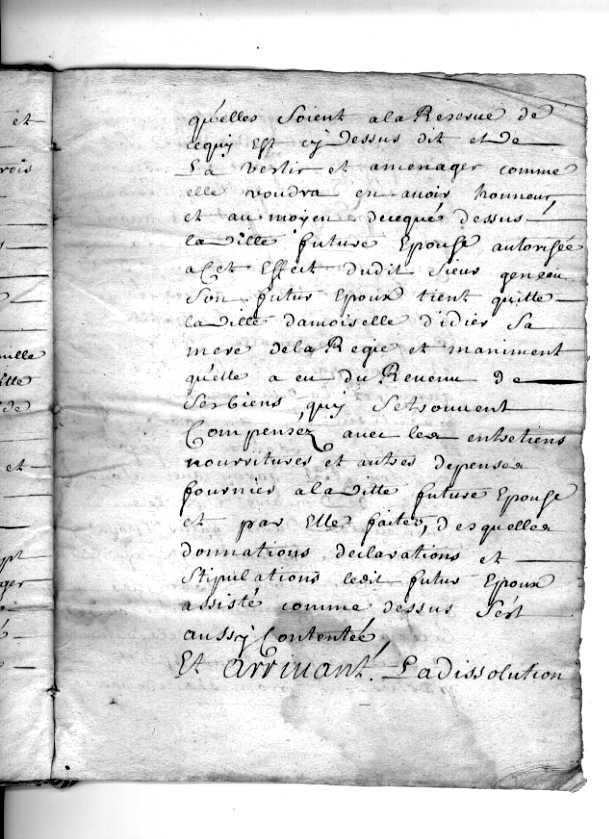 et
qu'elles soient a la Reserve de
ce quy Est cy Dessus dit et de
La vertir et amenager comme
elle voudra en avoir honneur,
et au moyen de ceque dessus
la ditte future Epouse autorisée
a Cet Effect dudit Sieur
Son futur Epoux tient quitte
la ditte damoiselle didier Sa
mere de la Regie et maniment
qu'elle a eu du Revenu de
Ses biens, quy Se trouvent
Compensez avec les entretiens
nourritures et autres depenses
fournies a la ditte future Epouse
et par Elle faites, desquelles
donnations declarations et
Stipulations ledit futur Epoux
assisté comme dessus S'est
aussy Contentée,
Et arrivant. La dissolution